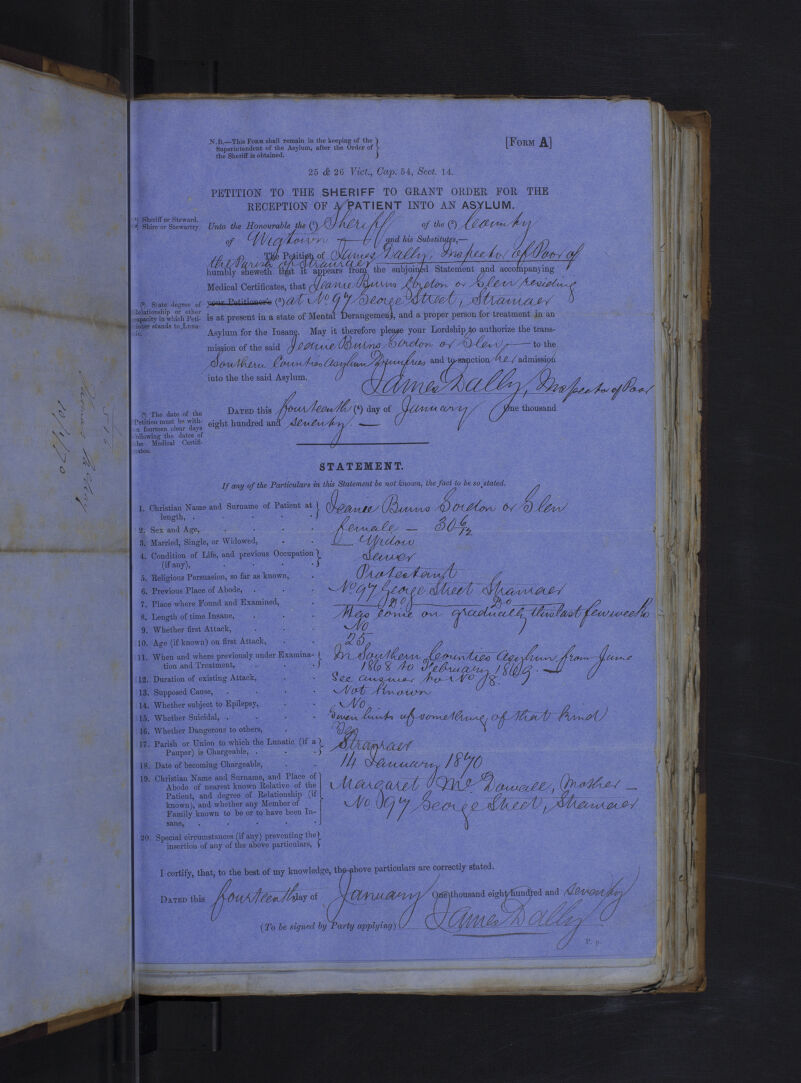 N.B.—This Form shall remain in the keeping of the
Superintendent of the Asylum, after the Order of
the Sheriff is obtained.
[FORM A]
25 & 26 Vict., Cap. 54, Sect. 14.
PETITION TO THE SHERIFF TO GRANT ORDER FOR THE
RECEPTION OF A PATIENT INTO AN ASYLUM.
Sheriff or Steward.
Shire or Stewartry.
Unto the Honourable the (¹) Sheriff of the (²) County
of Wigtown and his Substitutes,—
The Petition of James Dally, Inspector of Poor of
the Parish of Stranraer
humbly sheweth that it appears from the subjoined Statement and accompanying
Medical Certificates, that Jeanie Burns Gordon or Glen residing
your Petitioner's (³) at No 97 George Street, Stranraer
(³. State degree of
Relationship or other
capacity in which Peti-
tioner stands to Luna-
tic.
is at present in a state of Mental Derangement, and a proper person for treatment in an
Asylum for the Insane. May it therefore please your Lordship to authorize the trans-
mission of the said Jeanie Burns Gordon or Glen — to the
Southern Counties Asylum Dumfries and to sanction her admission
into the the said Asylum.
James Dally, Inspector of Poor
(⁴. The date of the
Petition must be with-
in fourteen clear days
following the dates of
the Medical Certifi-
cates.
DATED this fourteenth (⁴) day of January One thousand
eight hundred and seventy. —
STATEMENT.
If any of the Particulars in this Statement be not known, the fact to be so stated.
1. Christian Name and Surname of Patient at
length, Jeanie Burns Gordon or Glen
2. Sex and Age, female — 30 6/12
3. Married, Single, or Widowed, Widow
4. Condition of Life, and previous Occupation
(if any), Sewer
5. Religious Persuasion, so far as known, Protestant
6. Previous Place of Abode, No 97 George Street Stranraer
7. Place where Found and Examined, Do Do
8. Length of time Insane, Has come on gradually this last few weeks
9. Whether first Attack, No
10. Age (if known) on first Attack, 25
11. When and where previously under Examina-
tion and Treatment, In Southern Counties Asylum from June
1868 to February 1869. —
12. Duration of existing Attack, See answer to No 8.
13. Supposed Cause, Not known
14. Whether subject to Epilepsy, No
15. Whether Suicidal, Given hints of something of that kind
16. Whether Dangerous to others,
17. Parish or Union to which the Lunatic (if a
Pauper) is Chargeable, Stranraer
18. Date of becoming Chargeable, 14 January 1870
19. Christian Name and Surname, and Place of
Abode of nearest known Relative of the
Patient, and degree of Relationship (if
known), and whether any Member of
Family known to be or to have been In-
sane, Margaret McDowall, Mother —
No 97 George Street, Stranraer
20. Special circumstances (if any) preventing the
insertion of any of the above particulars,
I certify, that, to the best of my knowledge, the above particulars are correctly stated.
DATED this fourteenth day of January One thousand eight hundred and seventy
(To be signed by Party applying) James Dally
P. p.